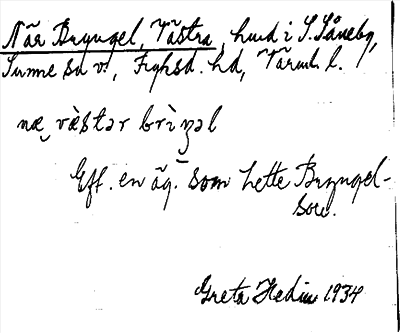 När Bryngel, Västra, hmd i S. Såneby,
Sunne sn v., Fryksd. hd, Värml. l.
næ væ̀stər brìŋəl
Eft. en äg. som hette Bryngels-
son.
Greta Hedin 1934